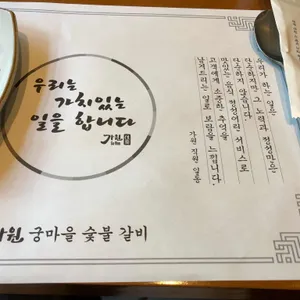 우리는
가치있는
일을 합니다
가원
우리가 하는 일은
단순하지만 그 노력과 정성만은
단순하지 않습니다.
맛있는 음식 정성어린 서비스로
고객에게 소중한 추억을
남겨드리는 일로 보람을 느낍니다.
가원 직원 일동
가원, 궁마을 숯불 갈비